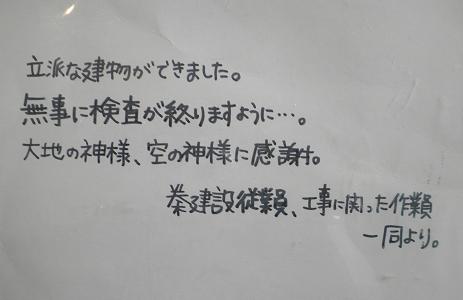 立派な建物ができました。
無事に検査が終りますように…。
大地の神様、空の神様に感謝。
桊建設従業員、工事に関った作業員
一同より。